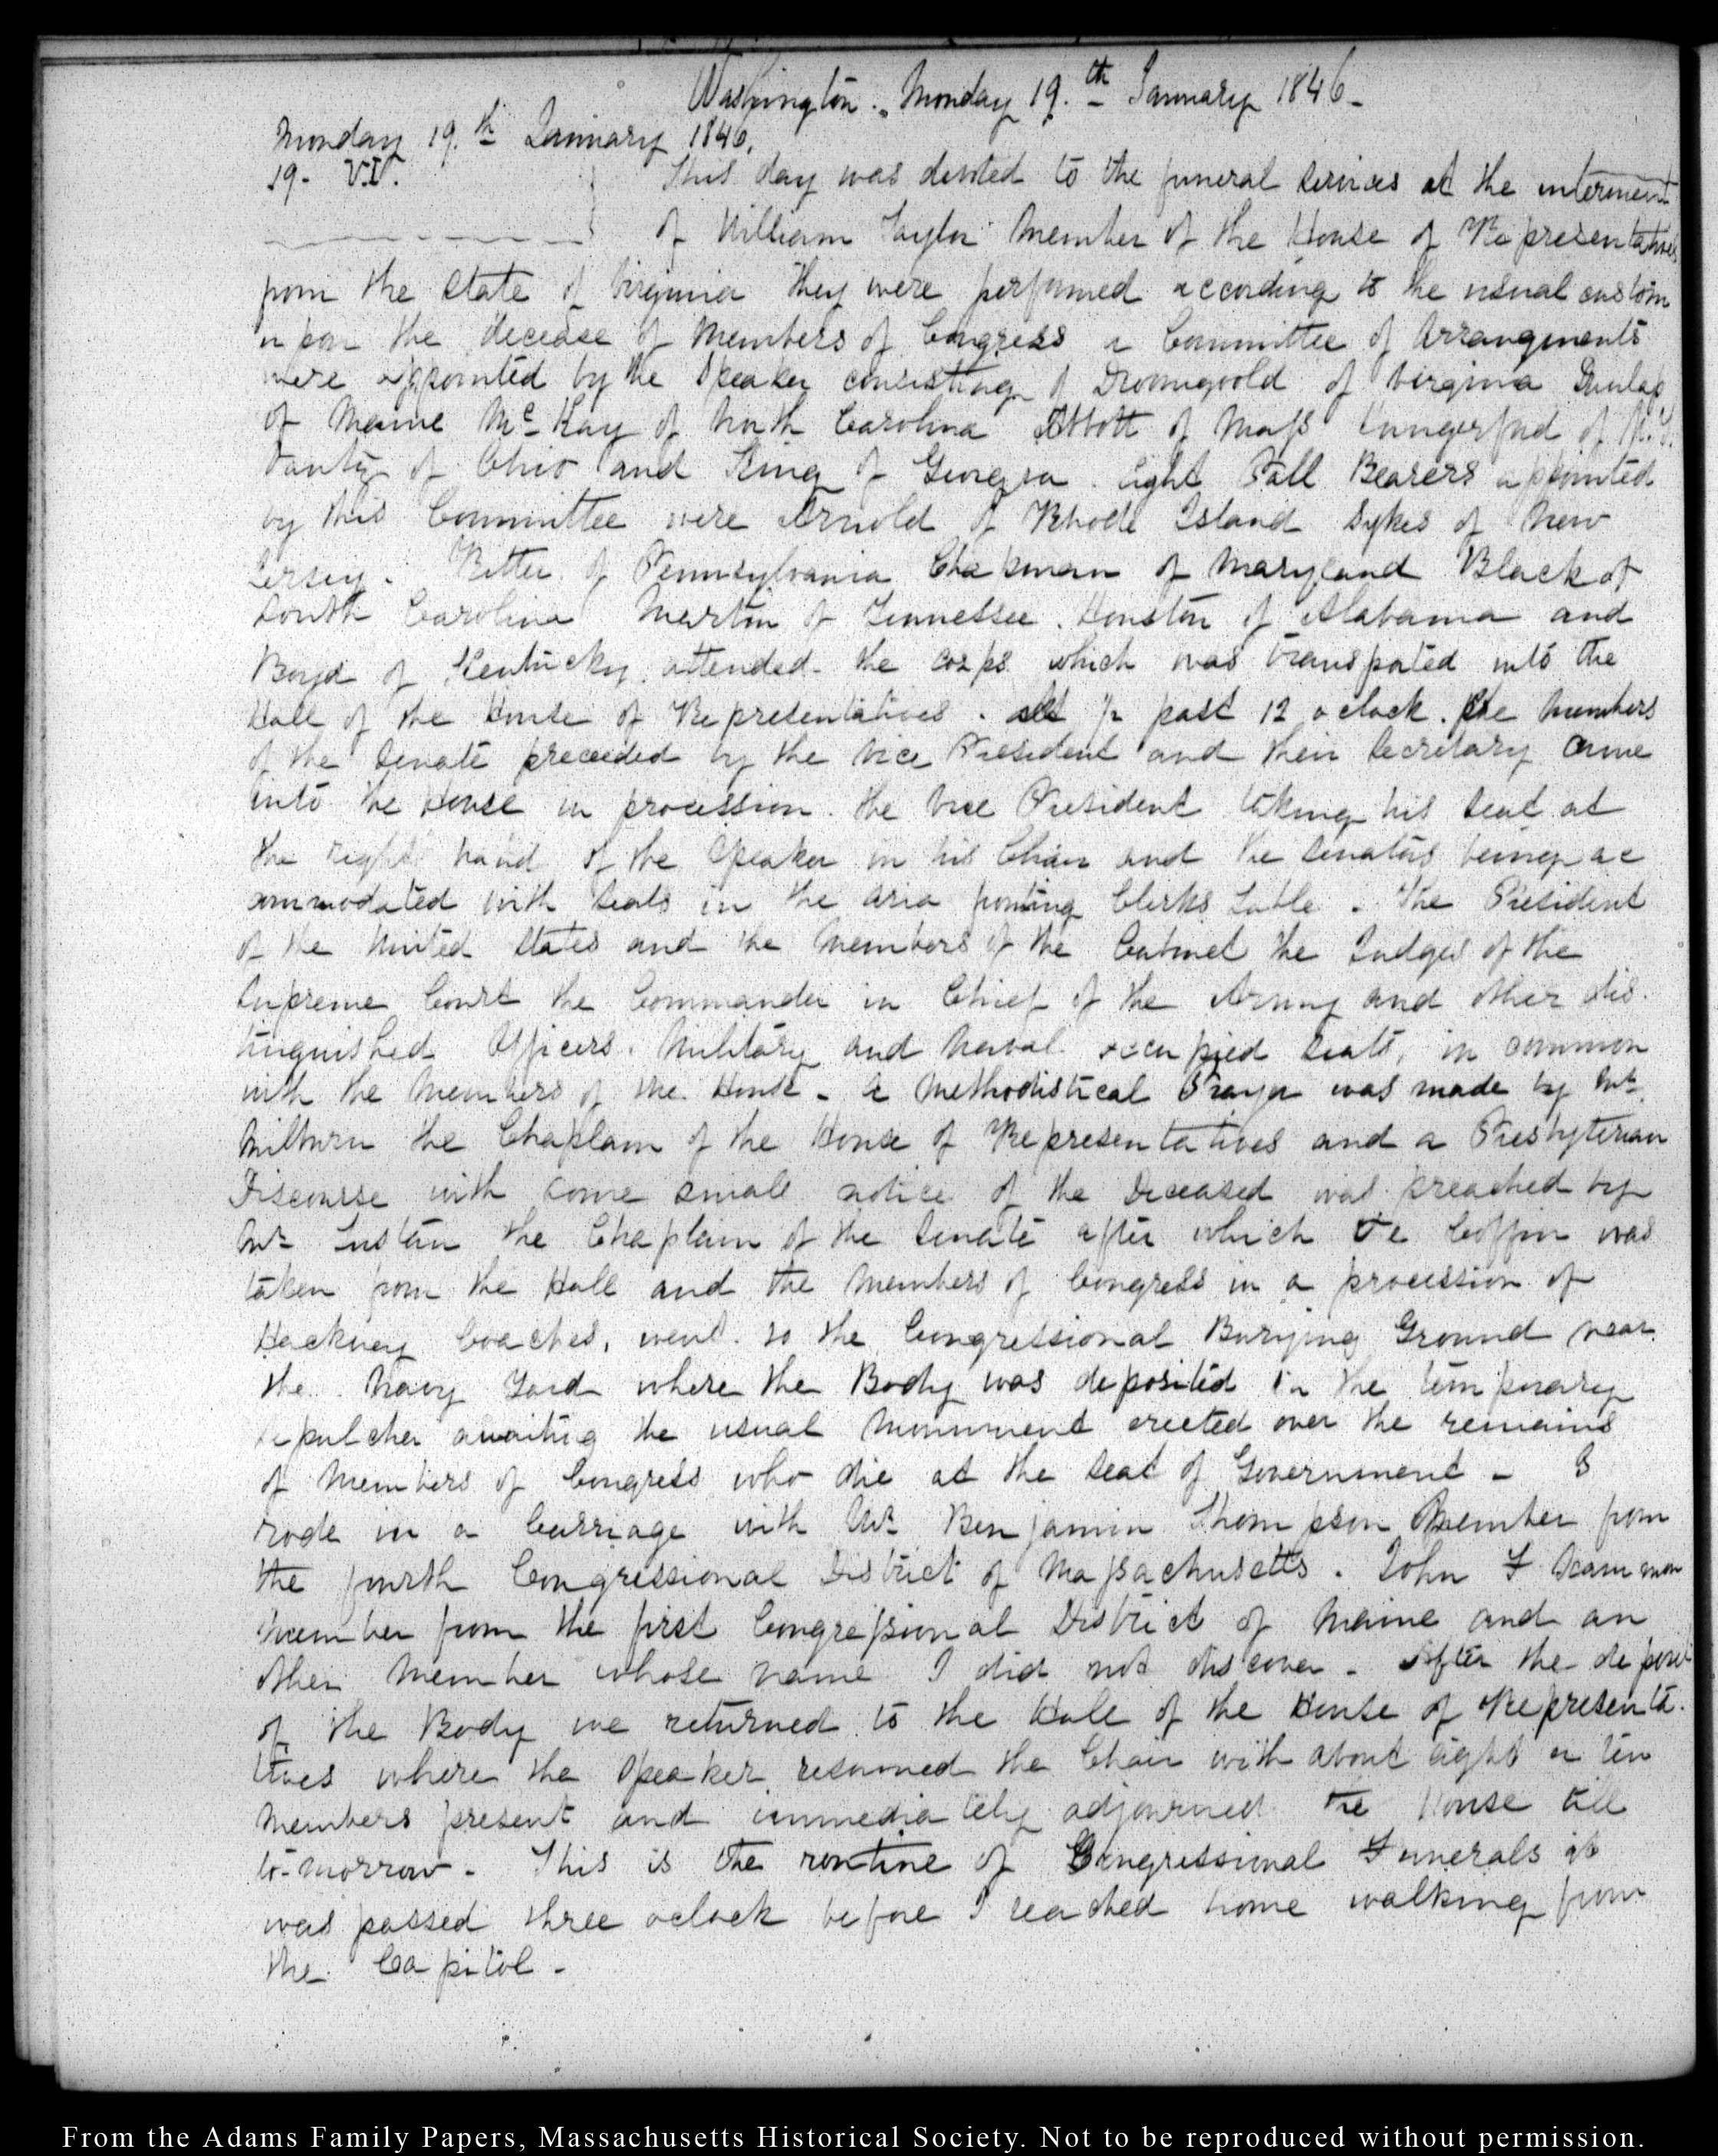 Washington. Monday 19.th January 1846-
Monday 19.th January 1846.
19. VI. This day was devoted to the funeral services at the interment
of William Taylor Member of the House of Representatives
from the State of Virginia they were performed according to the usual custom
upon the decease of Members of Congress a Committee of Arrangements
were appointed by the Speaker consisting of Dromgoold of Virginia Dunlap
of Maine Mc Kay of North Carolina Abbott of Mass Hungerford of N.Y.
Vantz of Ohio and King of Georgia. eight Pall Bearers appointed
by this Committee were Arnold of Rhode Island Sykes of New
Jersey. Ritter of Pennsylvania Chapman of Maryland Black of
South Carolina Martin of Tennessee. Houston of Alabama and
Boyd of Kentucky. attended the corps which was transported into the
Hall of the House of Representatives. at ½ past 12 o clock. the Members
of the Senate preceeded by the Vice President and their Secretary came
into the House in procession. the Vice President taking his seat at
the right hand of the Speaker in his Chair and the Senators being ac
commodated with seats in the area fronting Clerks Table. The President
of the United States and the Members of the Cabinet the Judges of the
Supreme Court the Commander in Chief of the Army and other dis.
tinguished Officers. Military and Naval occupied seats, in common
with the Members of the House - a Methodistical Prayer was made by Mr.
Milburn the Chaplain of the House of Representatives and a Presbyterian
Discourse with some small notice of the Deceased was preached by
Mr Tustan the Chaplain of the Senate after which the Coffin was
taken from the Hall and the Members of Congress in a procession of
Hackney Coaches, went to the Congressional Burying Ground near
the Navy Yard where the Body was deposited in the temporary
sepulcher awaiting the usual Monument erected over the remains
of Members of Congress who die at the seat of Government - I
rode in a Carriage with Mr. Benjamin Thompson Member from
the fourth Congressional District of Massachusetts. John F Scammon
Member from the first Congressional District of Maine and an
other Member whose name I did not discover - After the deposit
of the Body we returned to the Hall of the House of Representa.
tives where the Speaker resumed the Chair with about eight or ten
Members present and immediately adjourned the House till
to-morrow - This is the routine of Congressional Funerals it
was passed three oclock before I reached home walking from
the Capitol -
From the Adams Family Papers, Massachusetts Historical Society. Not to be reproduced without permission.